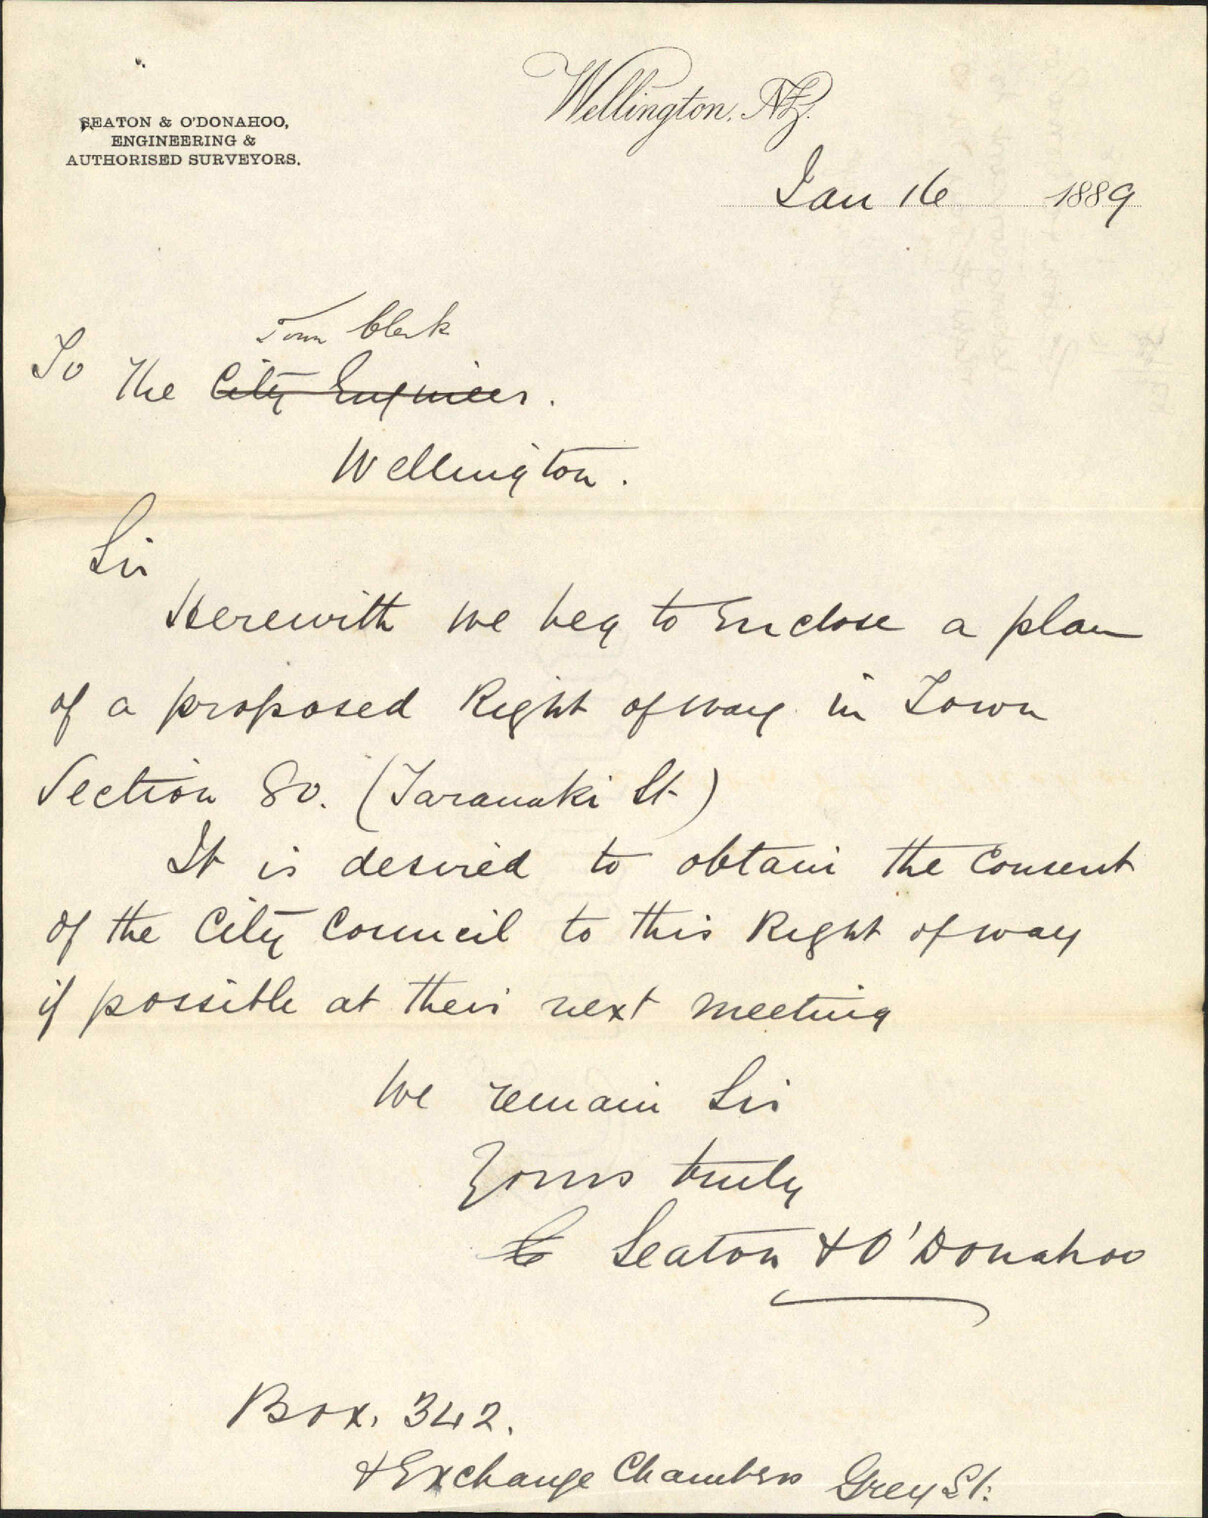 SEATON & O'DONAHOO,
ENGINEERING &
AUTHORISED SURVEYORS.
Wellington, N.Z.
Jan 16 1889
Town Clerk
To The City Engineer.
Wellington.
Sir
Herewith we beg to Enclose a plan
of a proposed Right of way in Town
Section 80. (Taranaki St)
It is desired to obtain the Consent
of the City Council to this Right of way
if possible at their next meeting
We remain Sir
Yours truly
Seaton & O'Donahoo
Box. 342.
& Exchange Chambers Grey St.